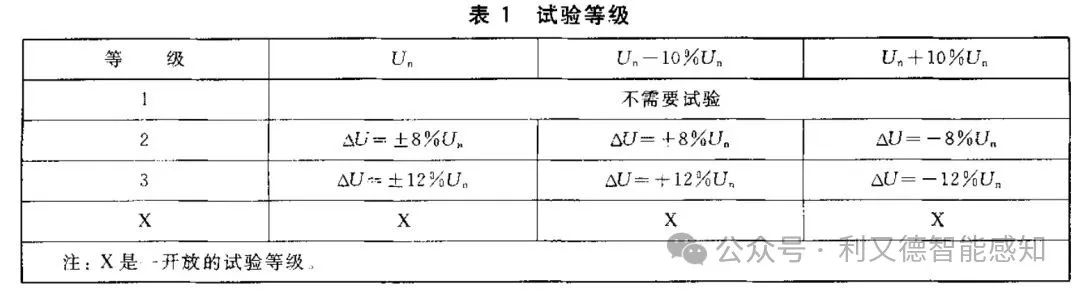 表 1 试验等级
等 级 Uₙ Uₙ－10%Uₙ Uₙ＋10%Uₙ
1 不需要试验
2 ΔU＝±8%Uₙ ΔU＝＋8%Uₙ ΔU＝－8%Uₙ
3 ΔU＝±12%Uₙ ΔU＝＋12%Uₙ ΔU＝－12%Uₙ
X X X X
注：X是一开放的试验等级。
公众号·利又德智能感知